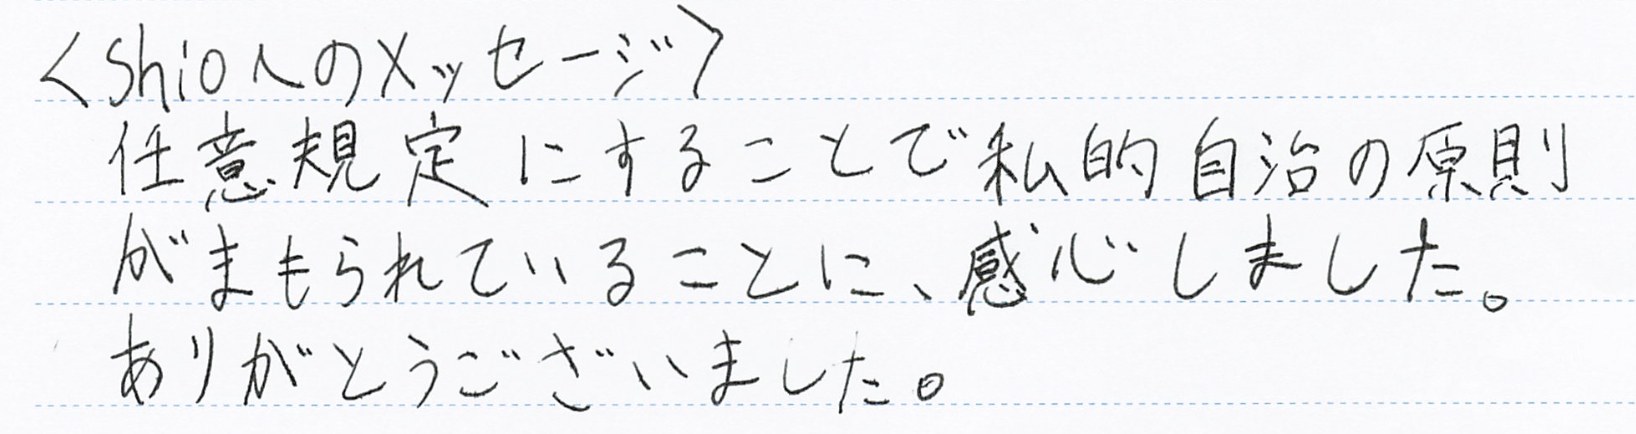 <Shioへのメッセージ>
任意規定にすることで私的自治の原則
がまもられていることに、感心しました。
ありがとうございました。